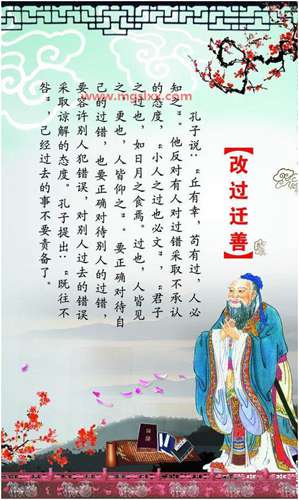 www.mgslxx.com
【改过迁善】
孔子说:“丘有幸,苟有过,人必
知之”。他反对有人对过错采取不承认
的态度,“小人之过也必文”,“君子
之过也,如日月之食焉。过也,人皆见
之,更也,人皆仰之”。要正确对待自
己的过错,也要正确对待别人的过错,
要容许别人犯错误,对别人过去的错误
采取谅解的态度。孔子提出:“既往不
咎”,已经过去的事不要责备了。